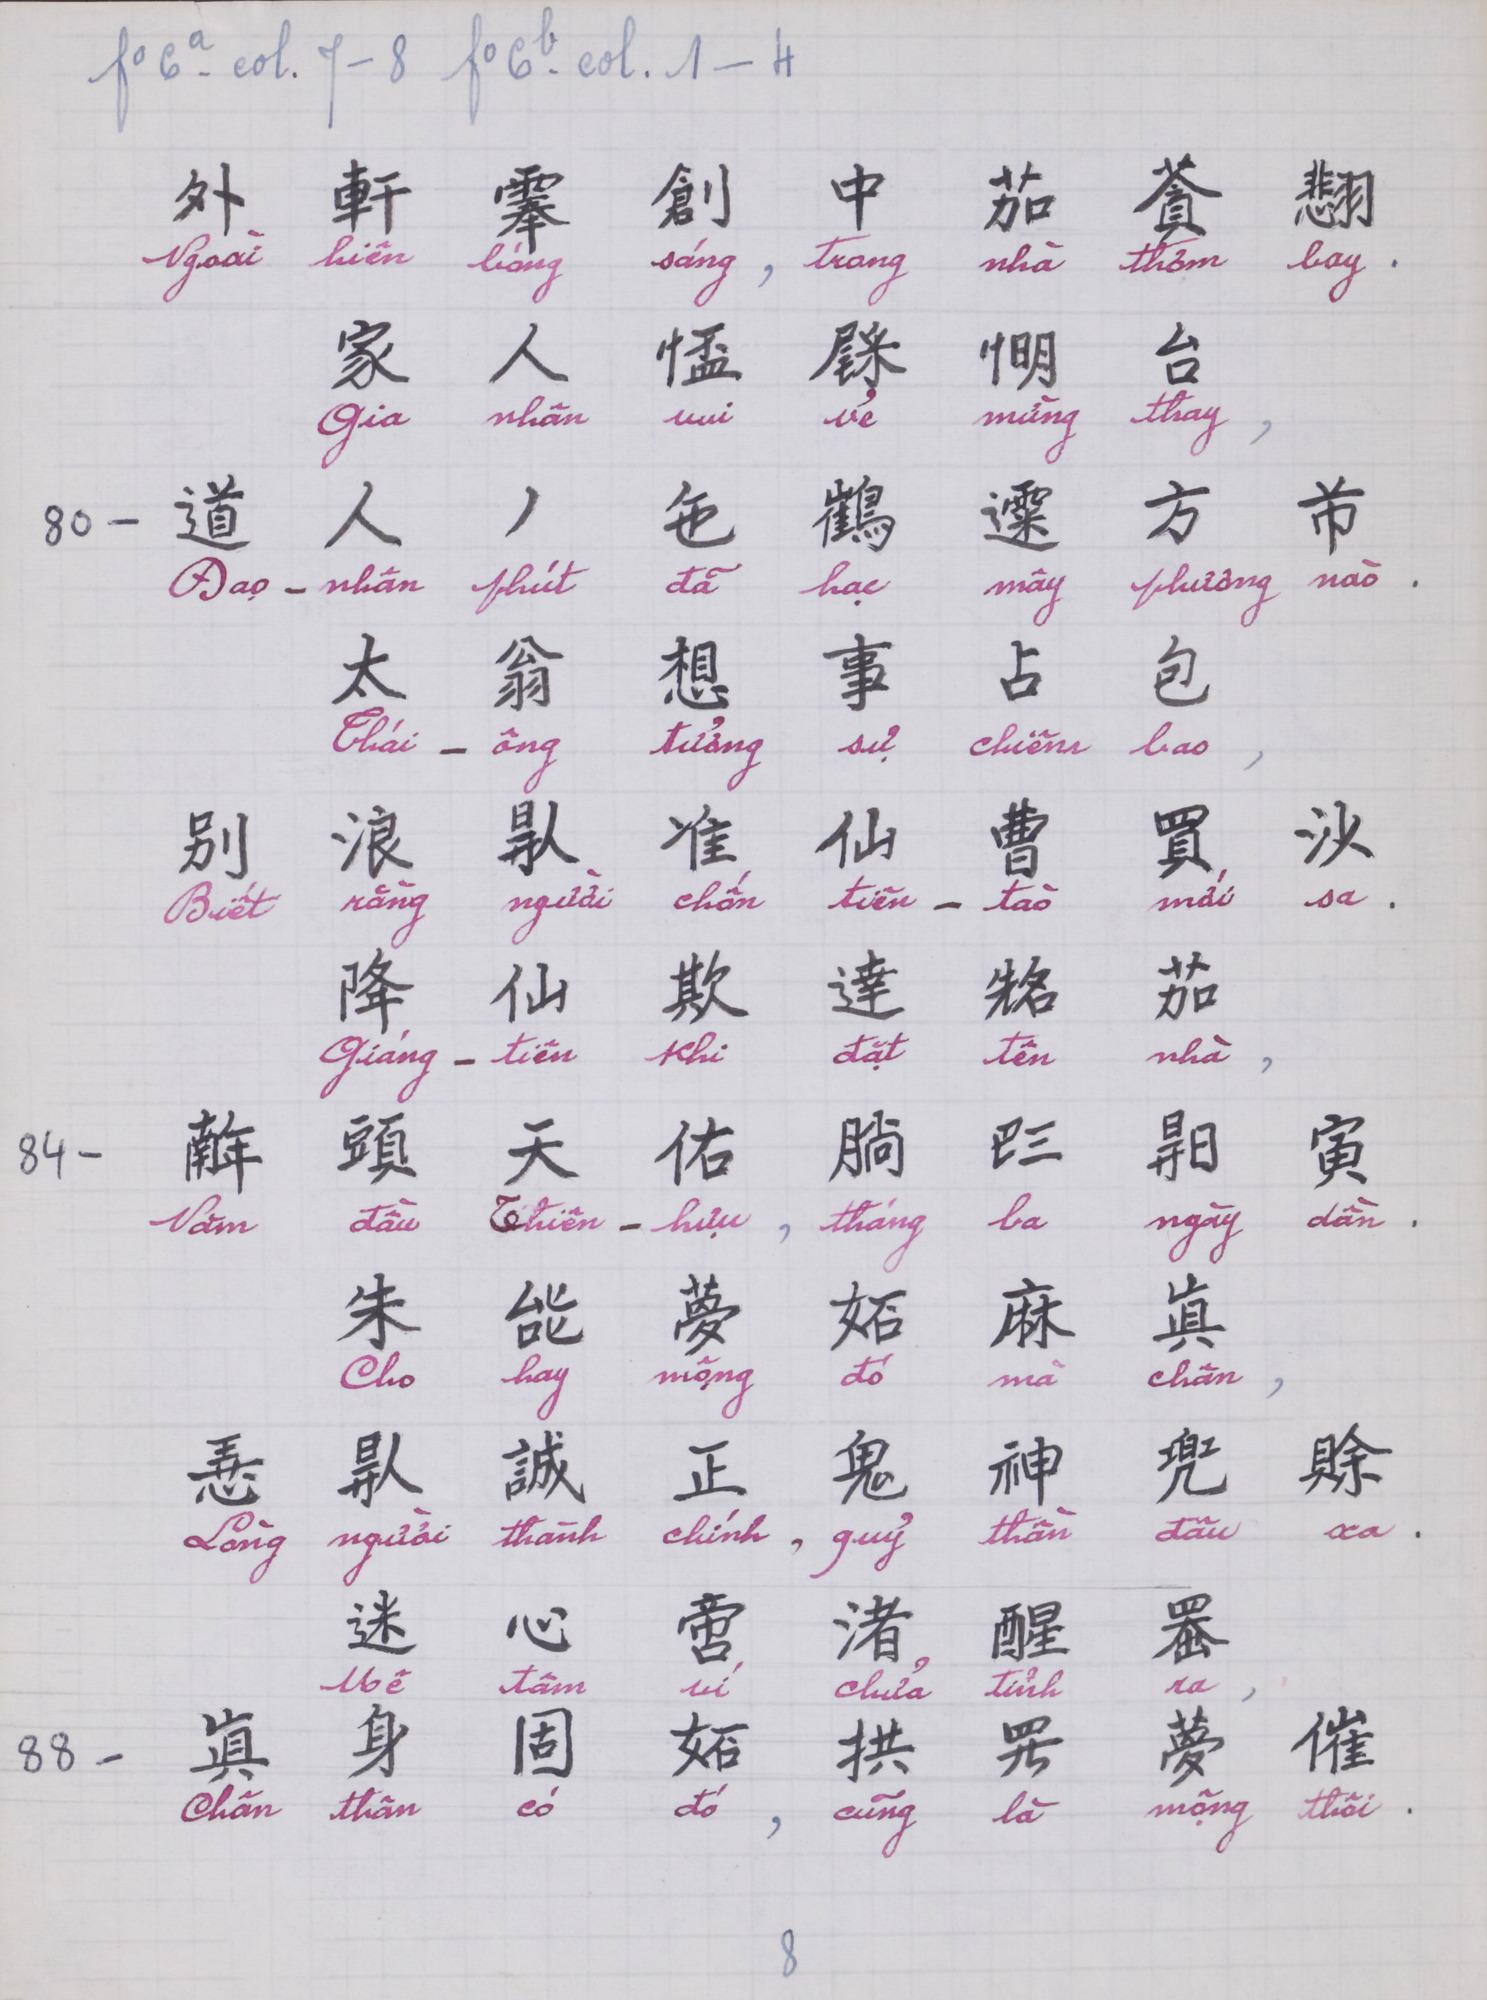 fo 6a. col. 7-8 fo 6b. col. 1-4
外 軒 創 中 茄 翻
Ngoài hiên bóng sáng, trong nhà thơm bay.
家 人 台
Gia nhân vui vẻ mừng thay,
80- 道 人 丿 鶴 方 芾
Đạo-nhân phút đã hạc mây phương nào.
太 翁 想 事 占 包
Thái-ông tưởng sự chiêm bao,
別 浪 准 仙 曹 買 沙
Biết rằng người chốn tiên-tào mới sa.
降 仙 欺 達 茄
Giáng-tiên khi đặt tên nhà,
84- 頭 天 佑 𣎃 𠀧 寅
Năm đầu Thiên-hựu, tháng ba ngày dần.
朱 夢 妬 麻 眞
Cho hay mộng đó mà chân,
誠 正 鬼 神 兜 賒
Lòng người thành chính, quỷ thần đâu xa.
迷 心 渚 醒
Mê tâm ví chửa tỉnh ra,
88- 眞 身 固 妬 拱 夢 催
Chân thân có đó, cũng là mộng thôi.
8